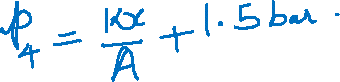 p₄ = kx/A + 1.5 bar.